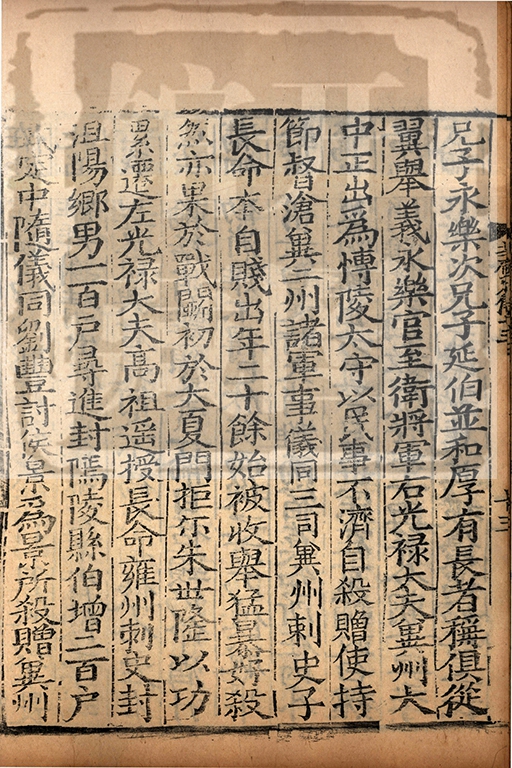 兄子永樂次兄子延伯並和厚有長者稱俱從
翼舉義永樂官至衛將軍右光禄大夫兾州大
中正出爲愽陵太守以民事不濟自殺贈使持
節督滄兾二州諸軍事儀同三司兾州刺史子
長命本自賤出年二十餘始被收舉猛暴好殺
然亦果於戰鬬初於大夏門拒尒朱世隆以功
累遷左光禄大夫高祖遥授長命雍州刺史封
沮陽鄉男一百户尋進封隖陵縣伯增二百户
定中隨儀同劉豐討侯景爲景所殺贈兾州